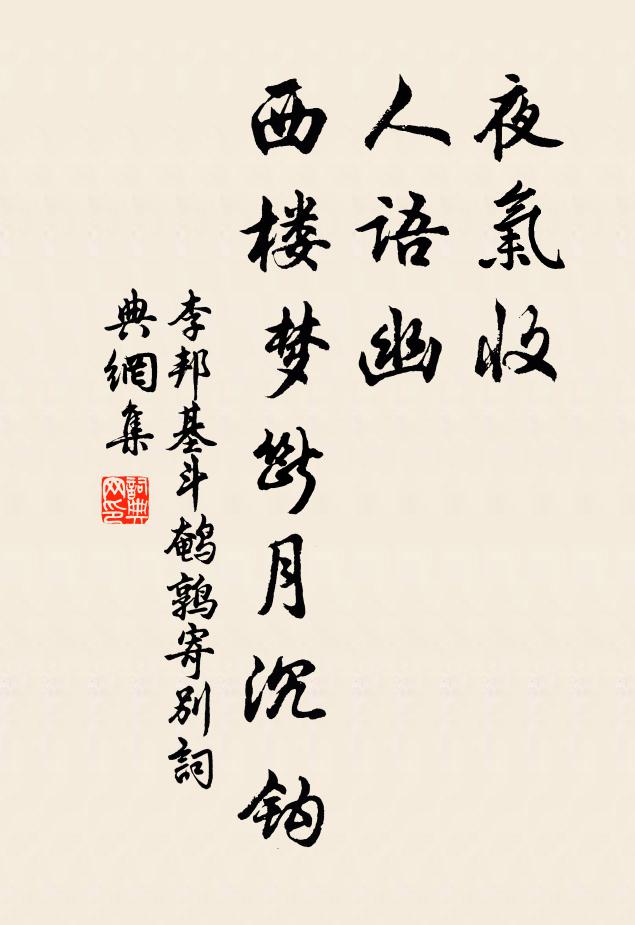 夜氣收
人语幽
西楼梦断月沉钩
李邦基斗鹌鹑寄别詞
典網集
詞典网印